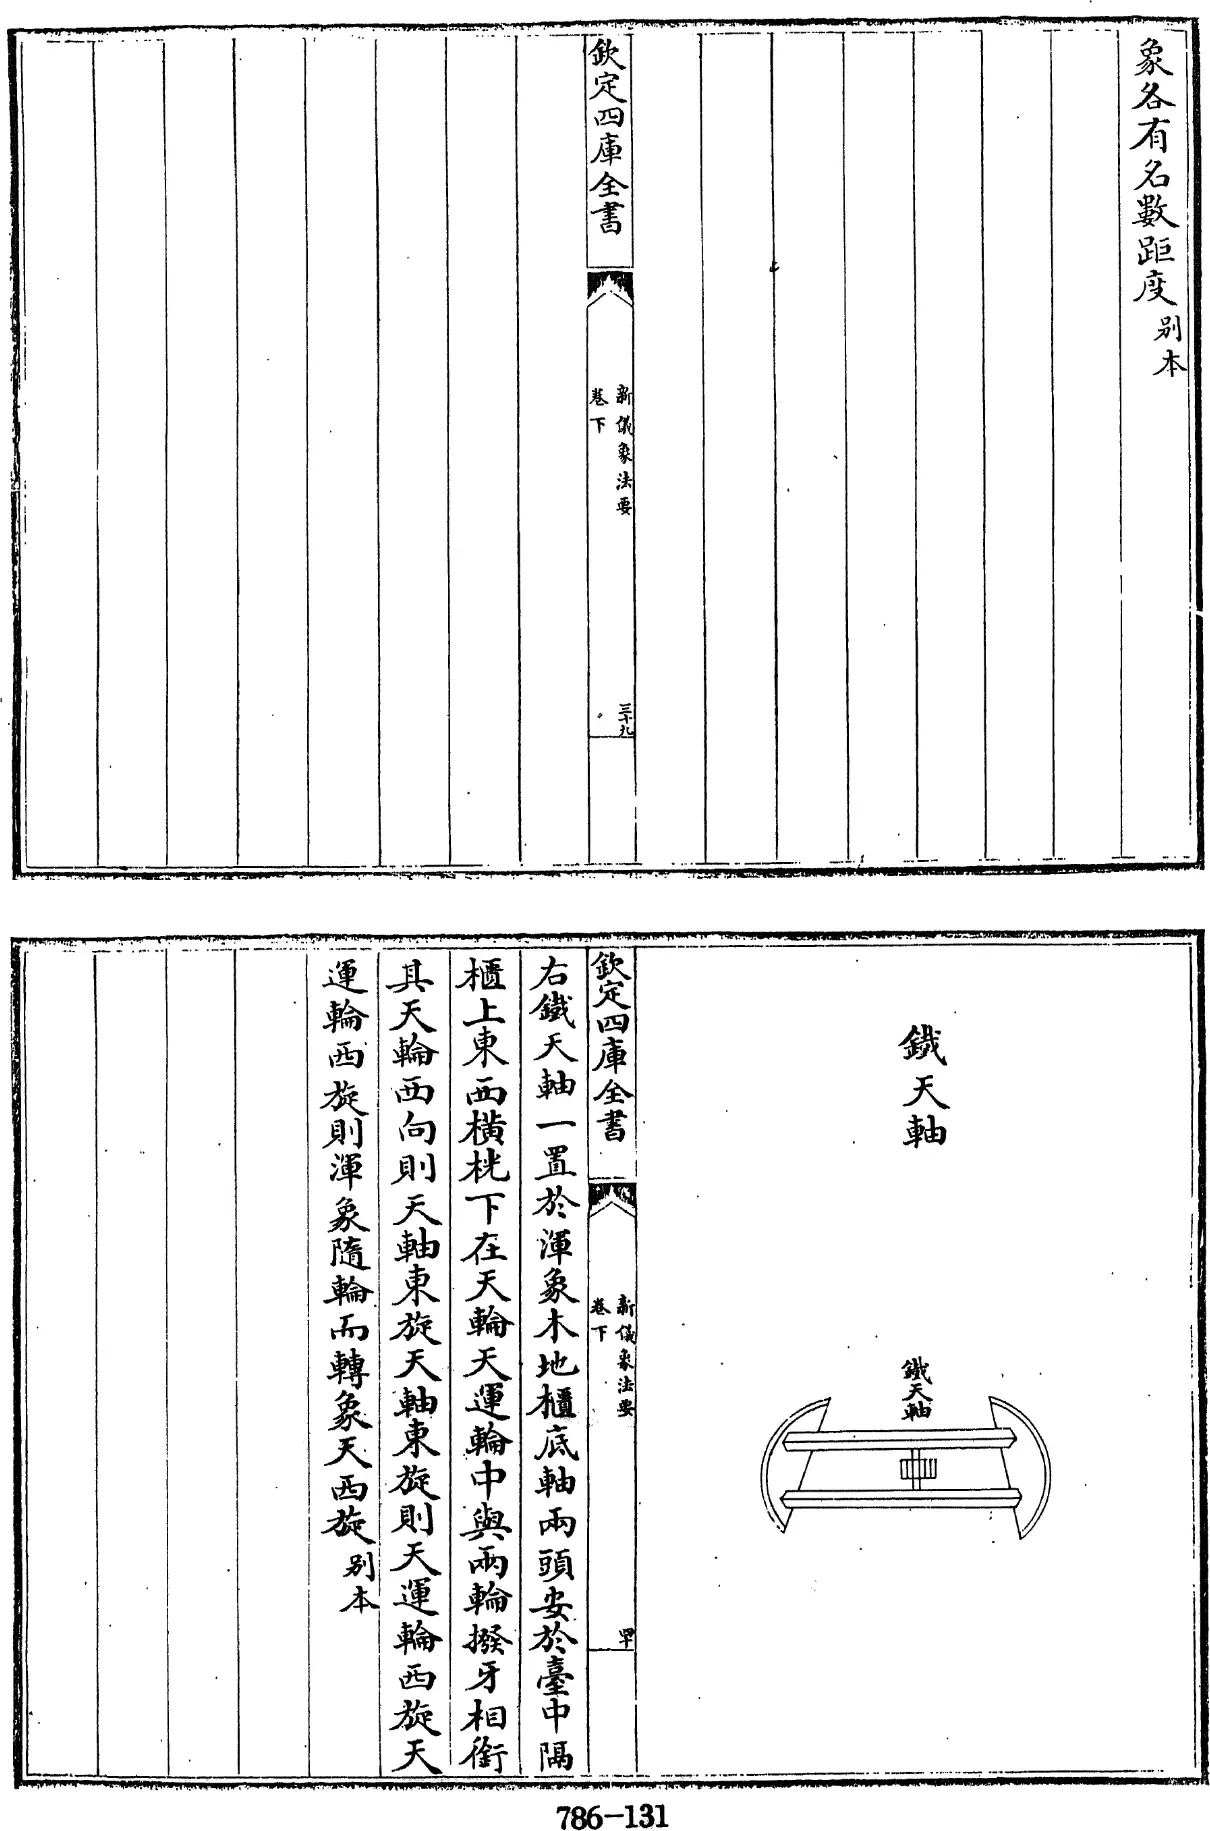 象各有名數距度別本
欽定四庫全書
新儀象法要
卷下
三十九
鐵天軸
鐵天軸
欽定四庫全書
新儀象法要
卷下
罕
右鐵天軸一置於渾象木地櫃底軸兩頭安於臺中隔
櫃上東西橫桄下在天輪天運輪中與兩輪撥牙相銜
其天輪西向則天軸東旋天軸東旋則天運輪西旋天
運輪西旋則渾象隨輪而轉象天西旋別本
786-131